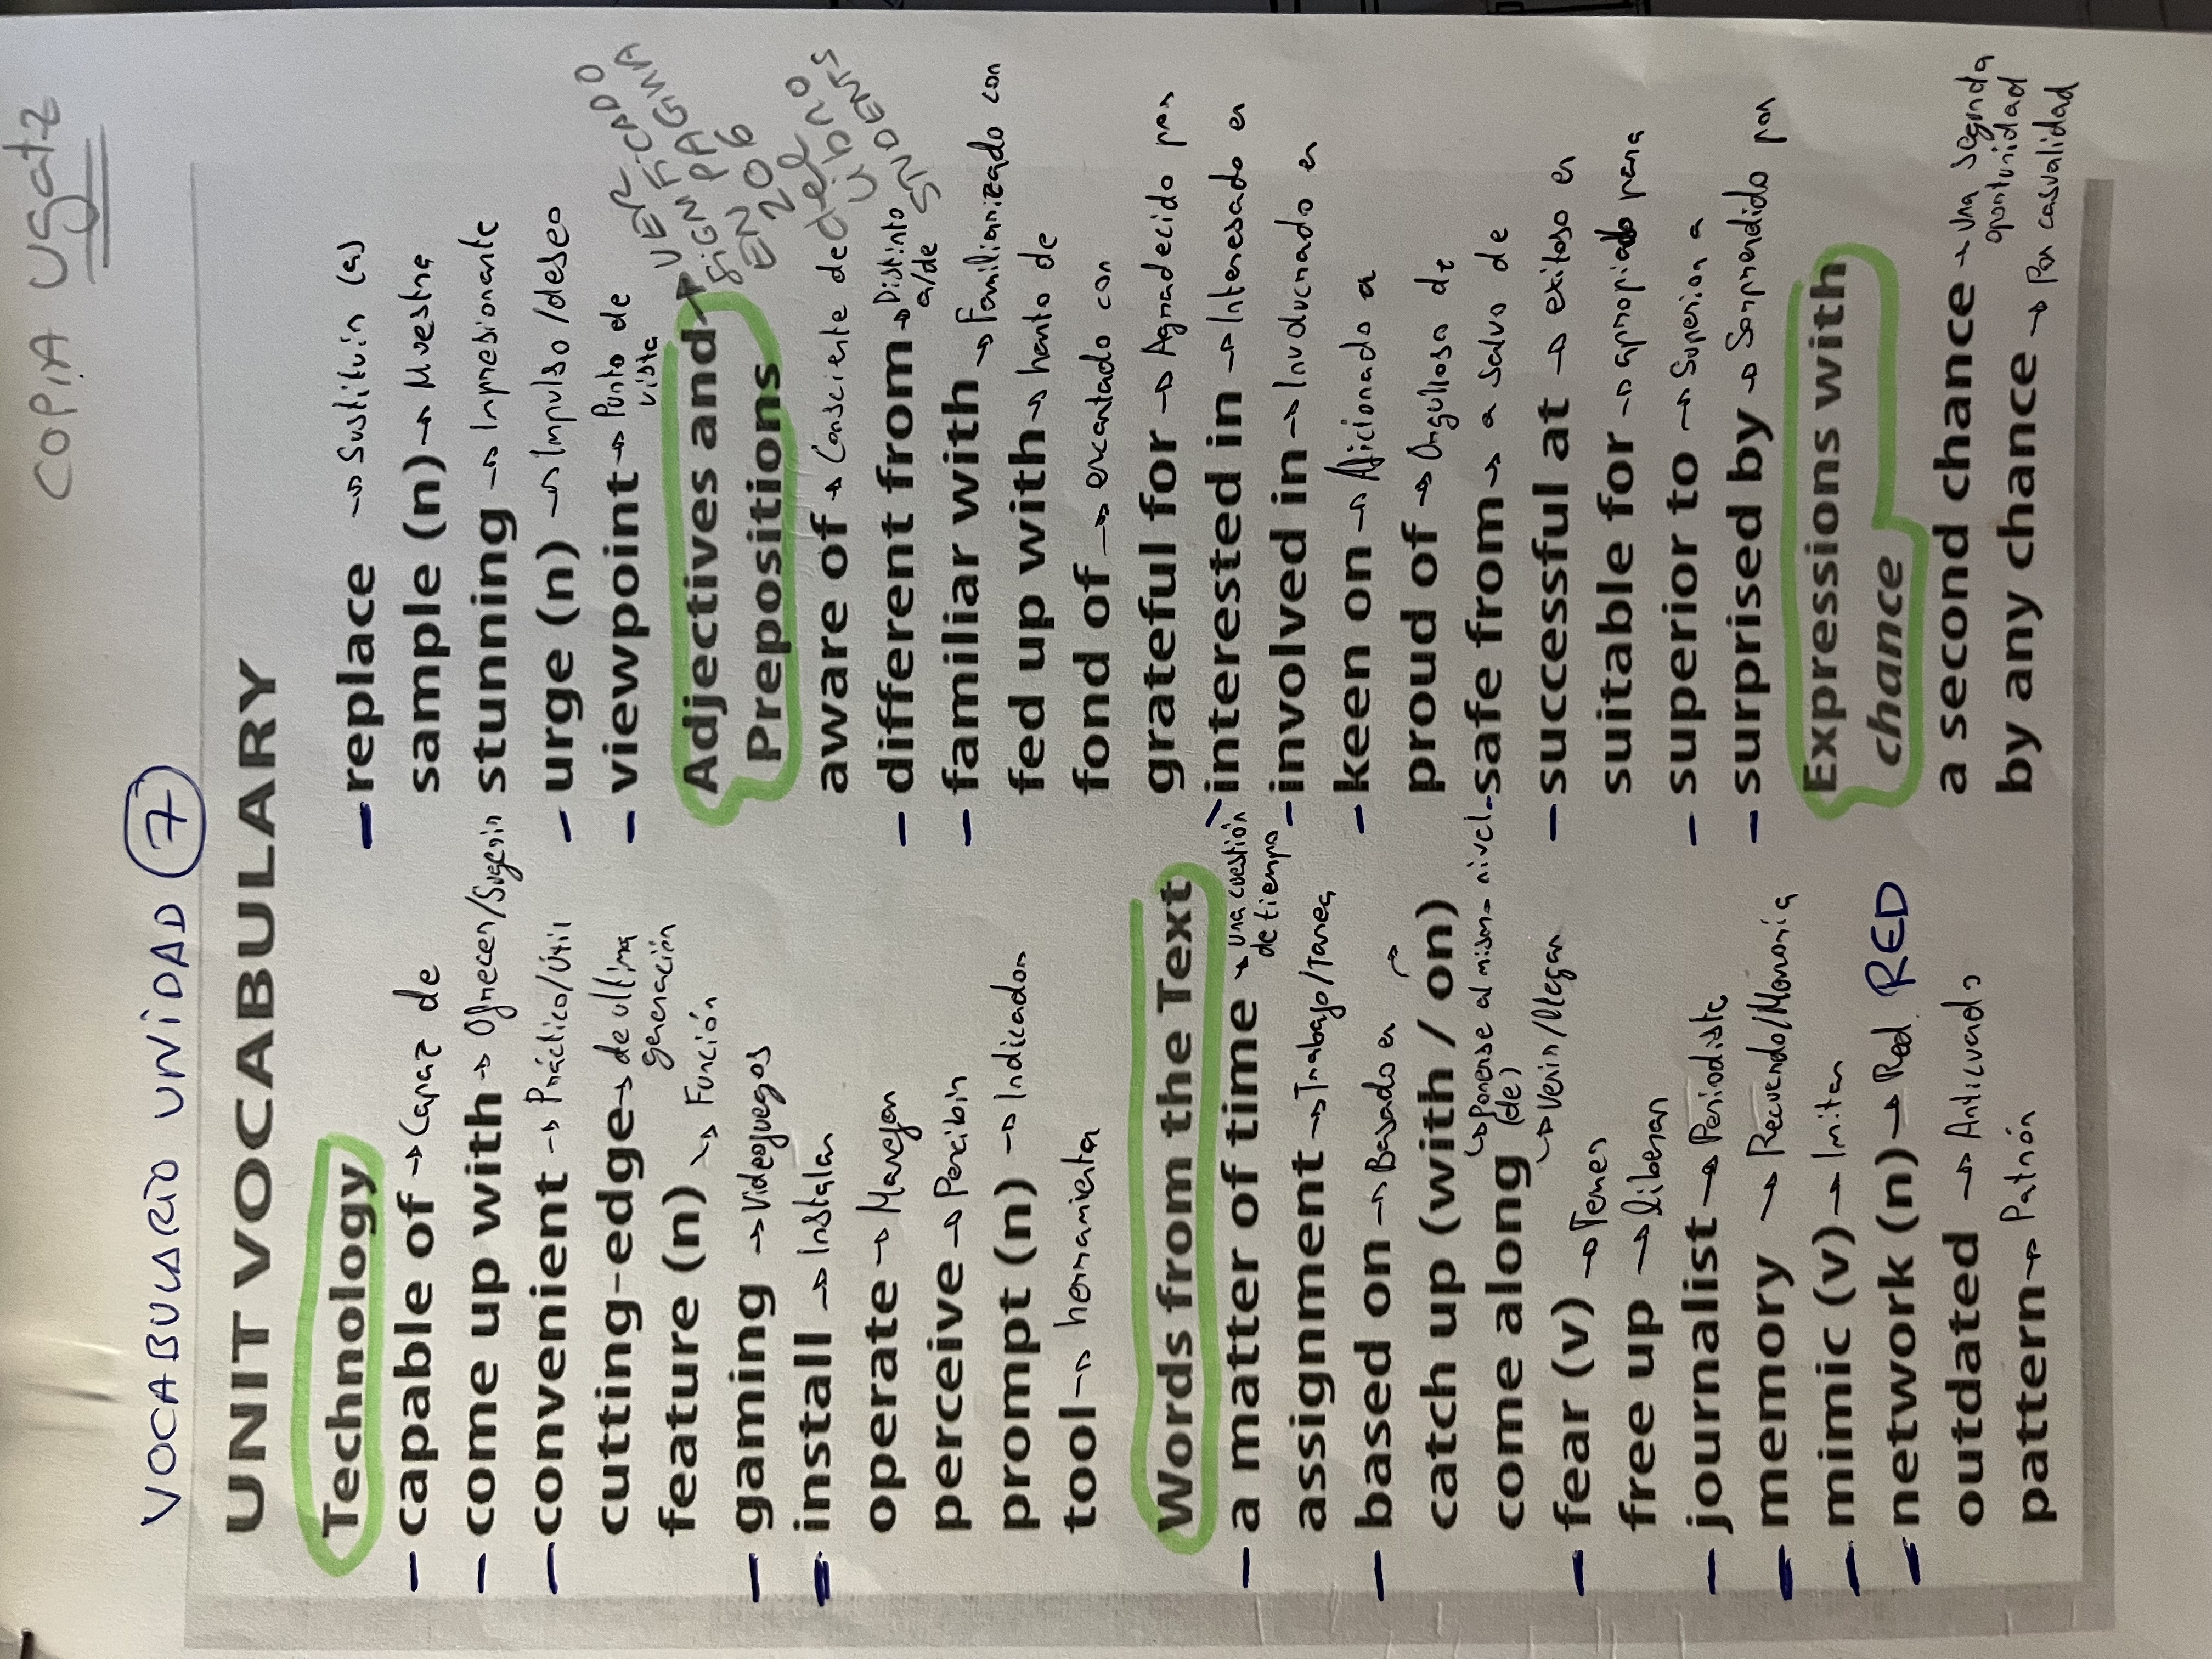 COPIA USAT-2
VOCABULARIO UNIDAD 7
UNIT VOCABULARY
Technology
– capable of → Capaz de
– come up with → Ofrecer/Sugerir
– convenient → Práctico/Útil
cutting-edge → de última generación
feature (n) → Función
– gaming → Videojuegos
– install → Instalar
operate → Manejar
perceive → Percibir
prompt (n) → Indicador
tool → herramienta
Words from the Text
– a matter of time → una cuestión de tiempo
assignment → Trabajo/Tarea
– based on → Basado en
catch up (with / on) → Ponerse al mismo nivel (de)
come along → Venir/Llegar
– fear (v) → Temer
free up → liberar
– journalist → Periodista
– memory → Recuerdo/Memoria
– mimic (v) → Imitar
– network (n) → Red RED
outdated → Anticuado
pattern → Patrón
– replace → Sustituir (a)
sample (n) → Muestra
stunning → Impresionante
– urge (n) → Impulso/deseo
– viewpoint → Punto de vista
Adjectives and Prepositions → VER SIGNIFICADO EN PAGINA 206 DEL LIBRO STUDENTS
aware of → Consciente de
– different from → Distinto a/de
– familiar with → Familiarizado con
fed up with → harto de
fond of → encantado con
grateful for → Agradecido por
– interested in → Interesado en
– involved in → Involucrado en
– keen on → Aficionado a
proud of → Orgulloso de
– safe from → a salvo de
– successful at → exitoso en
suitable for → apropiado para
– superior to → Superior a
– surprised by → Sorprendido por
Expressions with chance
a second chance → una segunda oportunidad
by any chance → Por casualidad